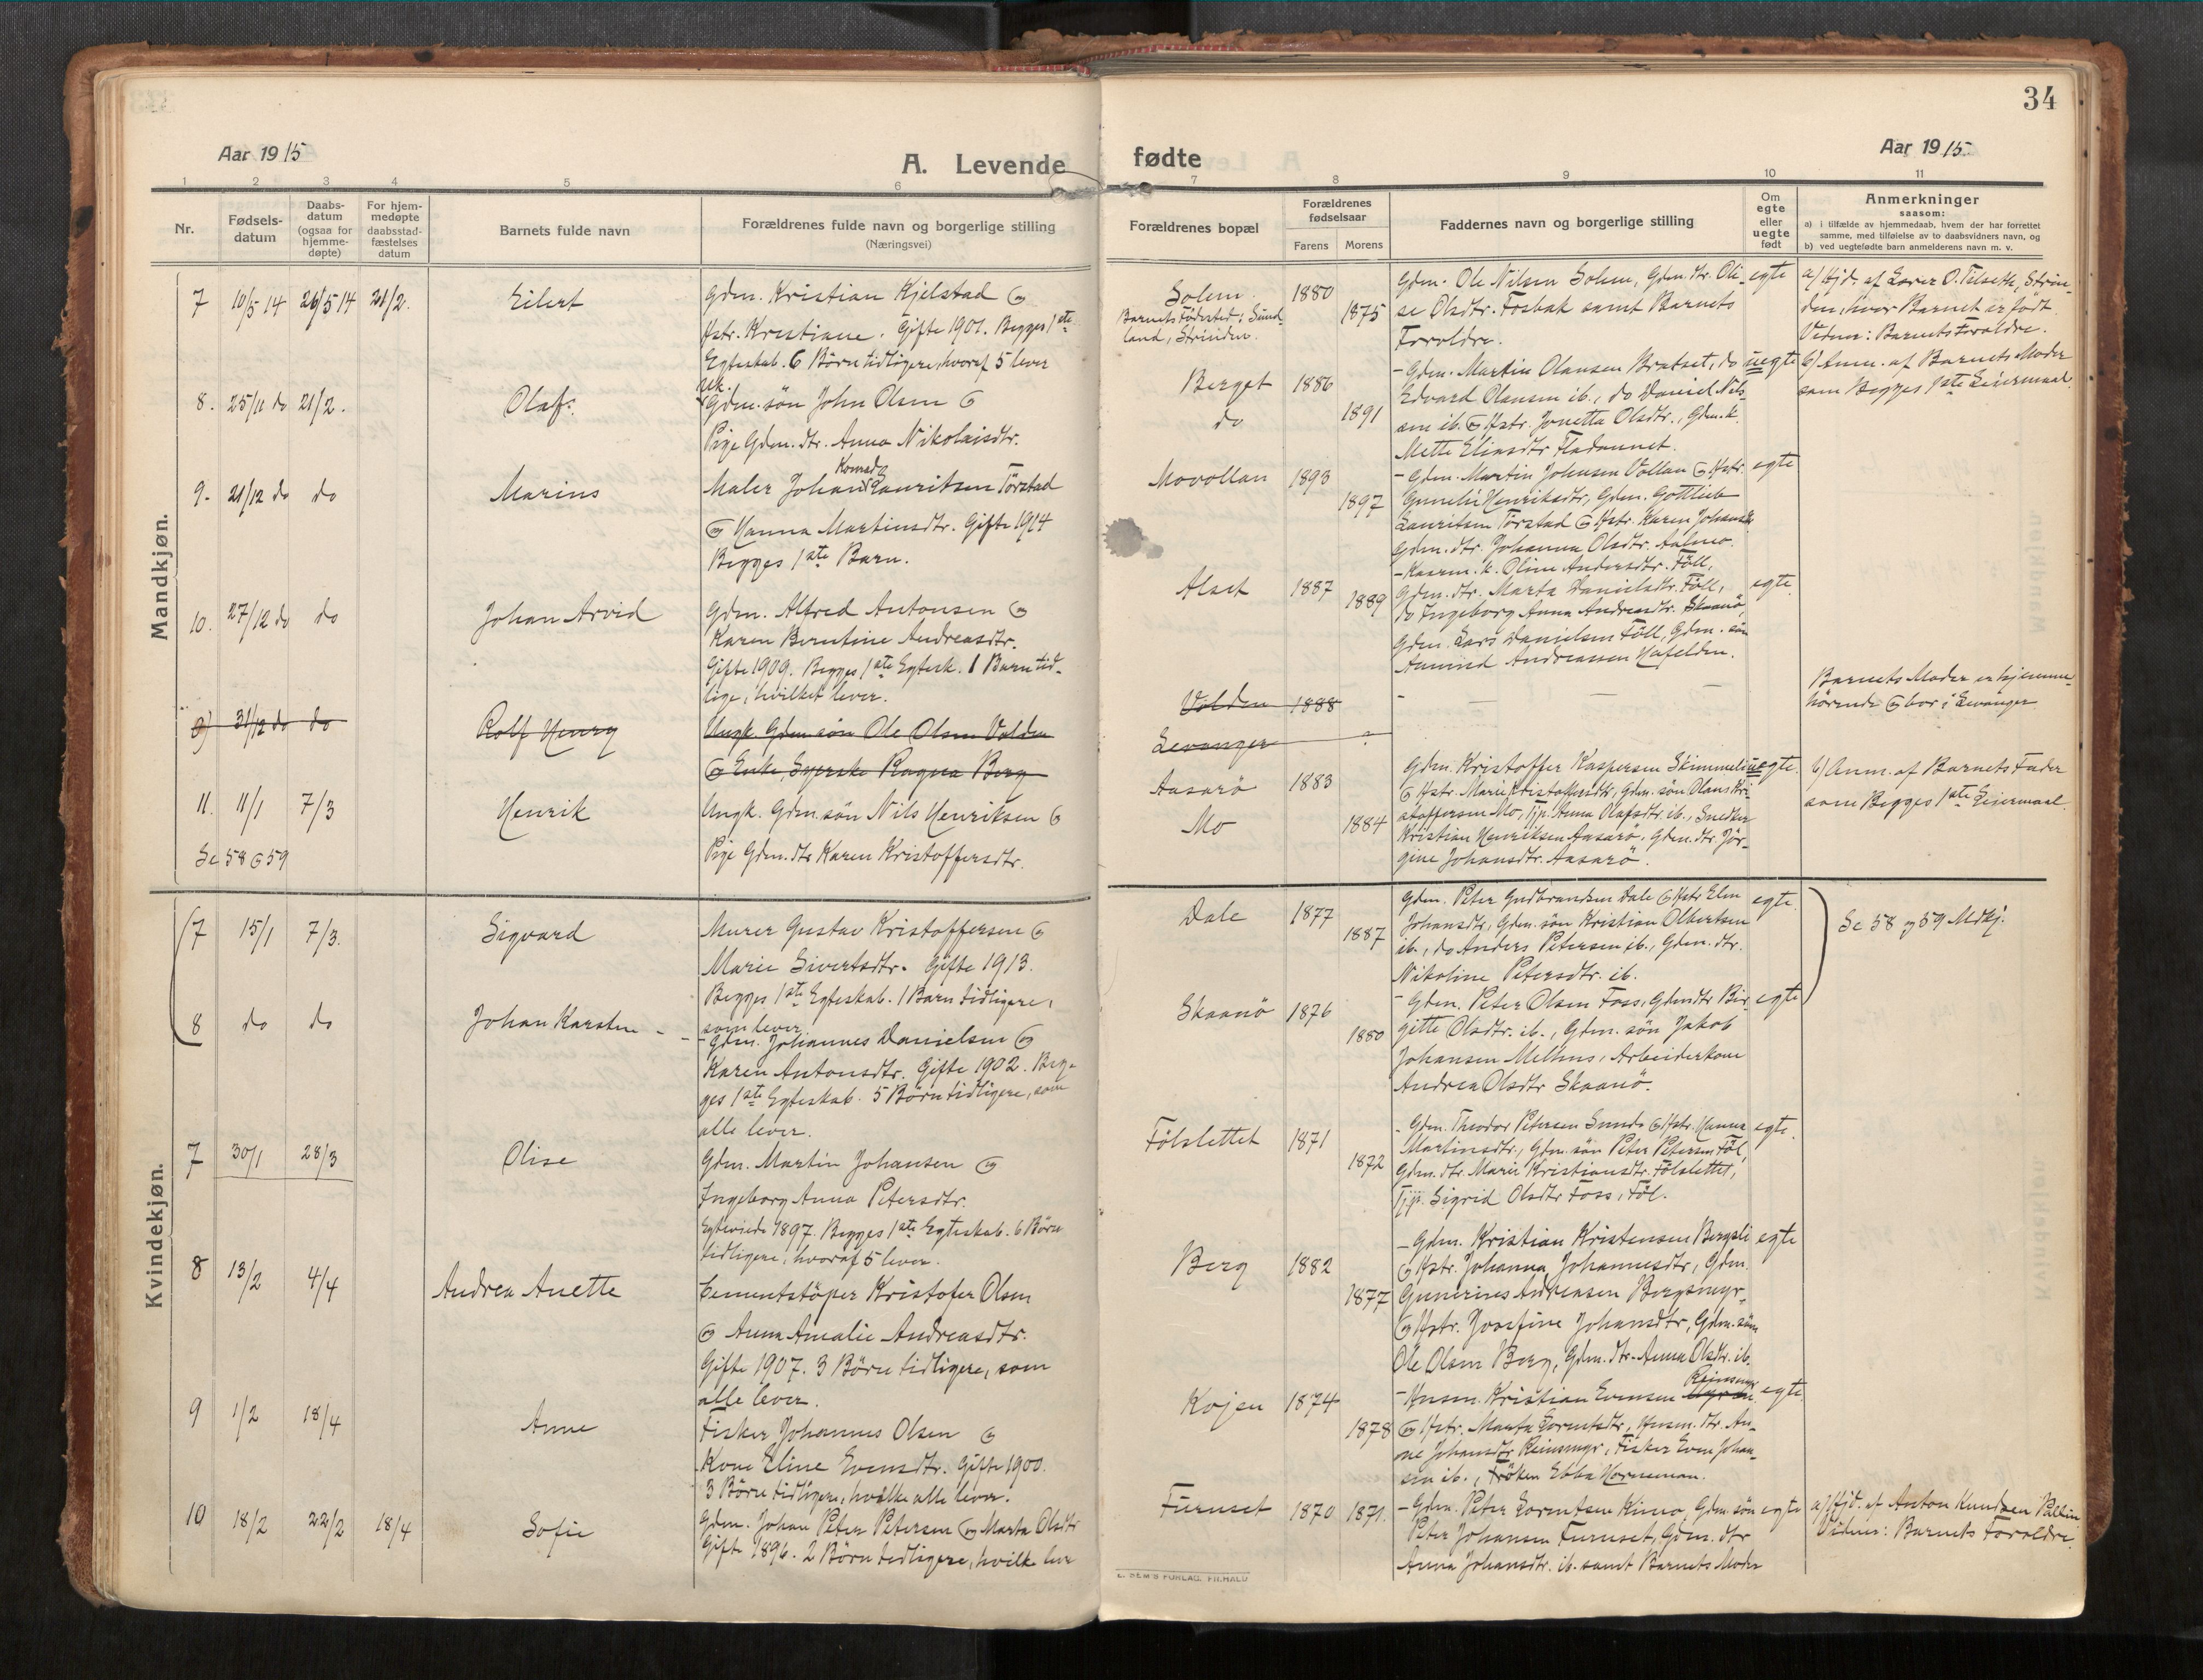 34
Aar 1915
A. Levende fødte
Aar 1915
1 2 3 4 5 6 7 8 9 10 11
Nr.
Fødsels-
datum
Daabs-
datum
(ogsaa for
hjemme-
døpte)
For hjem-
medøpte
daabsstad-
fæstelses
datum
Barnets fulde navn
Forældrenes fulde navn og borgerlige stilling
(Næringsvei)
Forældrenes bopæl
Forældrenes
fødselsaar
Farens Morens
Faddernes navn og borgerlige stilling
Om
egte
eller
uegte
født
Anmerkninger
saasom:
a) i tilfælde av hjemmedaab, hvem der har forrettet
samme, med tilføielse av to daabsvidners navn, og
b) ved uegtefødte barn anmelderens navn m. v.
Mandkjøn.
7 10/5 14 26/5 14 21/2. Eilert
Gdm. Kristian Kjelstad &
Hstr. Kristiane. Gifte 1901. Begges 1ste
Egteskab. 6 Børn tidligere, hvoraf 5 lever
Solem 1880
Barnets Fødested: Sund-
land, Strinden.
1875
Gdm. Ole Nilsen Solem, Gdm. dtr. Oli-
se Olsdtr. Fosbak samt Barnets
Forældre.
egte
a) Hjd. af Lærer O. Tilseth, Strin-
den, hvor Barnet er født
Vidner: Barnets Forældre.
8. 25/11 do 21/2. Olaf
Gdm. søn John Olsen &
Pige Gdm. dtr. Anna Nikolaisdtr.
Berget 1886
do 1891
- Gdm. Martin Olausen Bratset, do
Edvard Olausen ib., do Daniel Nils-
sen ib. & Hstr. Jonetta Olsdtr., Gdm. k.
Mette Eliasdtr Fladaunet.
uegte
b) Anm. af Barnets Moder
som Begges 1ste Leiermaal.
9. 21/12 do do Marius
Konrad
Maler Johan Lauritsen Tørstad
& Hanna Martinsdtr. Gifte 1914
Begges 1ste Barn.
Movollan 1893
1897
- Gdm. Martin Johnsen Vollan & Hstr.
Gunelie Henriksdtr, Gdm. Gottlieb
Lauritsen Tørstad & Hstr. Karen Johansdtr.
Gdm. dtr. Johanna Olsdtr. Aalmo.
egte
10. 27/12 do do Johan Arvid
Gdm. Alfred Antonsen &
Karen Berntine Andreasdtr.
Gifte 1909. Begges 1ste Egtesk. 1 Barn tid-
lige, hvilket lever.
Alset 1887
1889
- Kaarm. k. Oline Andersdtr. Föll,
Gdm. dtr. Marta Danielsdtr. Föll,
do Ingeborg Anna Andreasdtr. Skaanö,
Gdm. Lars Danielsen Föll, Gdm. søn
Aamund Andreassen Hafelden.
egte.
9) 31/12 do do Rolf Henry
Ungk. Gdm søn Ole Olsen Valden
& Enke, Syerske Ragna Berg
Valden 1888
Levanger ?
Barnets Moder er hjemme-
hörende & bor i Levanger
11. 11/1 7/3 Henrik
Se 58 & 59
Ungk. Gdm. søn Nils Henriksen &
Pige Gdm. dtr Karen Kristoffersdtr.
Aasarö 1883
Mo 1884
Gdm. Kristoffer Kaspersen Skimmeli
& Hstr. Marie Kristoffersdtr, Gdm. søn Olaus Kri-
stoffersen Mo, Tjp. Anna Olafsdtr. ib., Snedker
Kristian Henriksen Aasarö. Gdm. dtr. Jör-
gine Johansdtr. Aasarö.
uegte.
b) Anm. af Barnets Fader
som Begges 1ste Leiermaal.
Kvindekjøn.
7 15/1 7/3. Sigvard
Murer Gustav Kristoffersen &
Marie Sivertsdtr. Gifte 1913.
Begges 1ste Egteskab. 1 Barn tidligere,
som lever.
Dale 1877
1887
Gdm. Peter Gudbrandsen Dale & Hstr Elen
Johansdtr., Gdm. søn Kristian Olbertsen
ib., do Anders Petersen ib., Gdm. dtr.
Nikoline Petersdtr. ib.
egte.
Se 58 og 59 Mdkj.
8 do do Johan Karsten
- Gdm. Johannes Danielsen &
Karen Antonsdtr. Gifte 1902. Beg-
ges 1ste Egteskab. 5 Børn tidligere, som
alle lever.
Skaanö 1876
1880
- Gdm. Peter Olsen Foss, Gdmdtr Bir-
gitte Olsdtr. ib., Gdm. søn Jakob
Johansen Melhus, Arbeiderkone
Andrea Olsdtr Skaanö.
egte
7 30/1 28/3 Olise
Gdm. Martin Johansen &
Ingeborg Anna Petersdtr.
Egteviede 1897. Begges 1ste Egteskab. 6 Børn
tidligere, hvoraf 5 lever.
Fölslettet 1871
1872
- Gdm. Theodor Petersen Sunds & Hstr. Hanna
Martinsdtr., Gdm. søn Peter Petersen Föl,
Gdm. dtr. Marie Kristiansdtr. Fölslettet,
Tjp. Sigrid Olsdtr Foss, Föl.
egte.
8 13/2 4/4 Andrea Anette
Cementstöper Kristofer Olsen
& Anna Amalie Andreasdtr.
Gifte 1907. 3 Børn tidligere, som
alle lever.
Berg 1882
1877
- Gdm. Kristian Kristensen Bergsli
& Hstr. Johanna Johannesdtr, Gdm.
Gunerius Andreasen Bergsmyr
& Hstr. Josefine Johansdtr, Gdm. søn
Ole Olsen Berg, Gdm. dtr. Anna Olsdtr. ib.
egte
9 1/2 18/4 Anne
Fisker Johannes Olsen &
Kone Eline Evensdtr. Gifte 1900.
3 Børn tidligere, hvilke alle lever.
Kojen 1874
1878
Reinsmyr
- Husm. Kristian Evensen
& Hstr. Marta Lorentsdtr, Husm. dtr. An-
ne Johansdtr Reinsmyr, Fisker Even Johan-
sen ib., Fröken Ebba Horneman.
egte
10 18/2 22/2 18/4 Sofie
Gdm. Johan Peter Petersen & Marta Olsdtr
Gifte 1896. 2 Børn tidligere, hvilke lever
Furuset 1870 1871.
- Gdm. Peter Lorentsen Kimo, Gdm. søn
Peter Johansen Furuset, Gdm. dtr
Anna Johansdtr. ib. samt Barnets Moder
egte
a) Hjd. af Anton Knudsen Pallin
Vidner: Barnets Forældre.
E. SEM'S FORLAG, FR.HALD